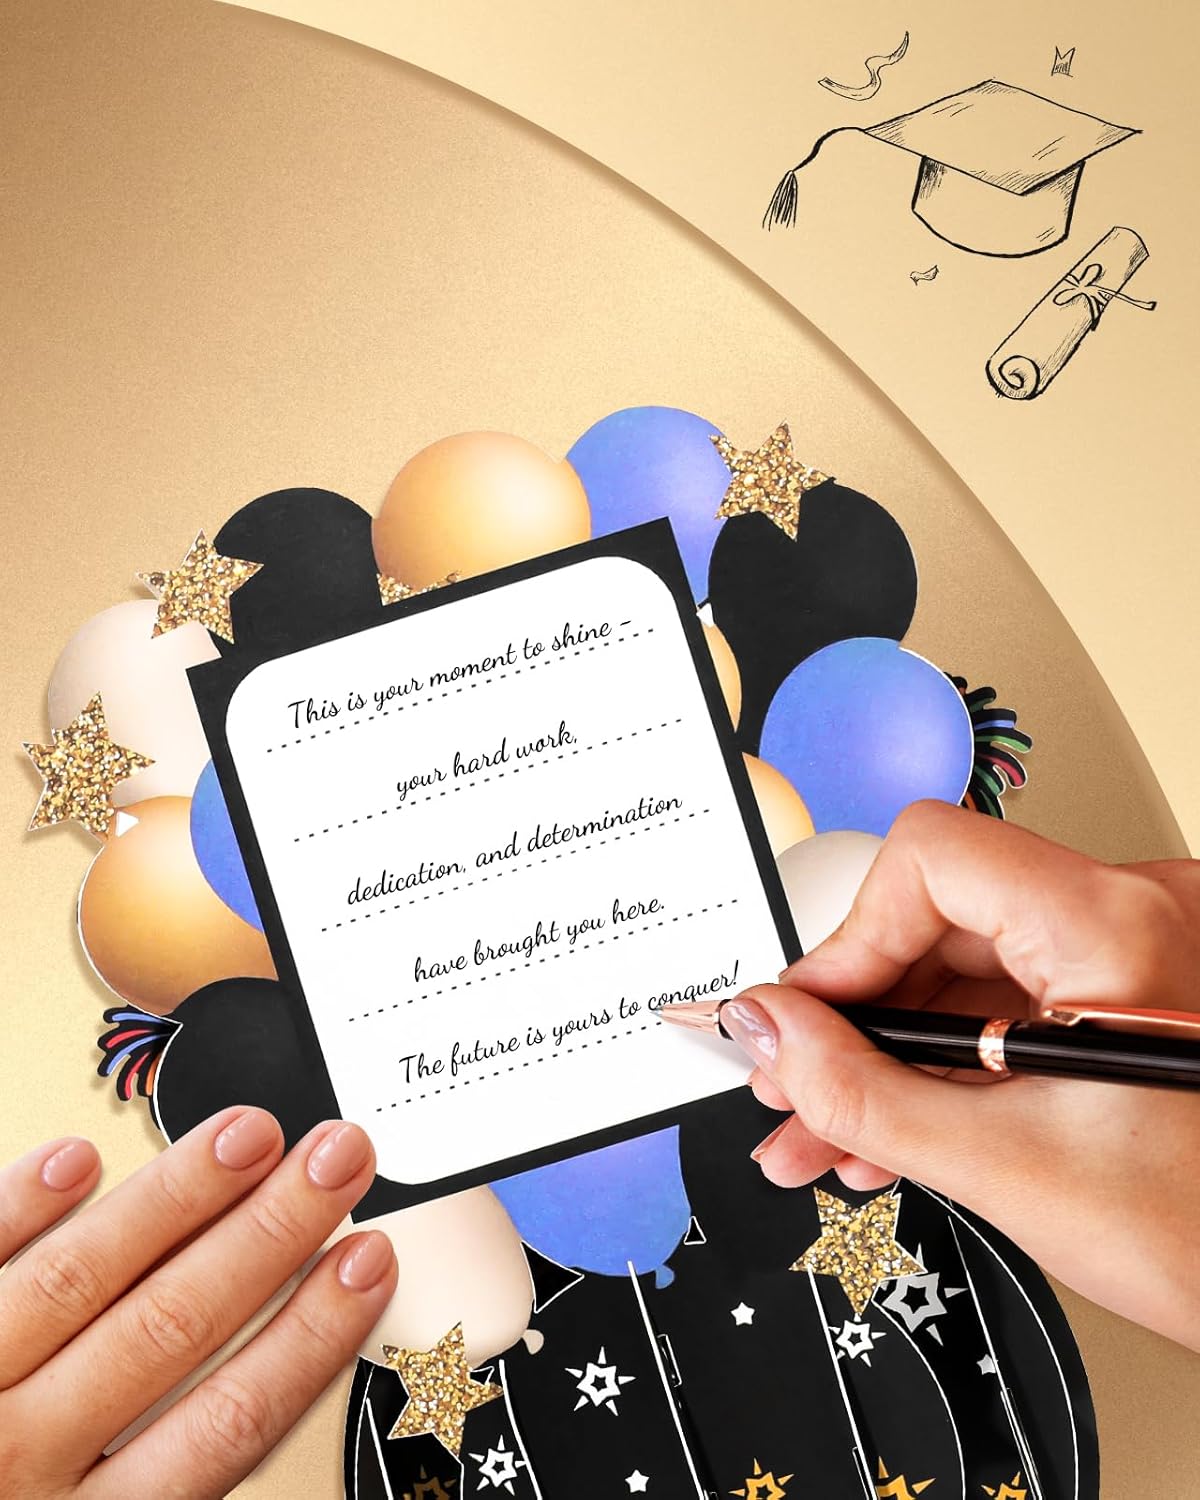 This is your moment to shine -
your hard work,
dedication, and determination
have brought you here.
The future is yours to conquer!